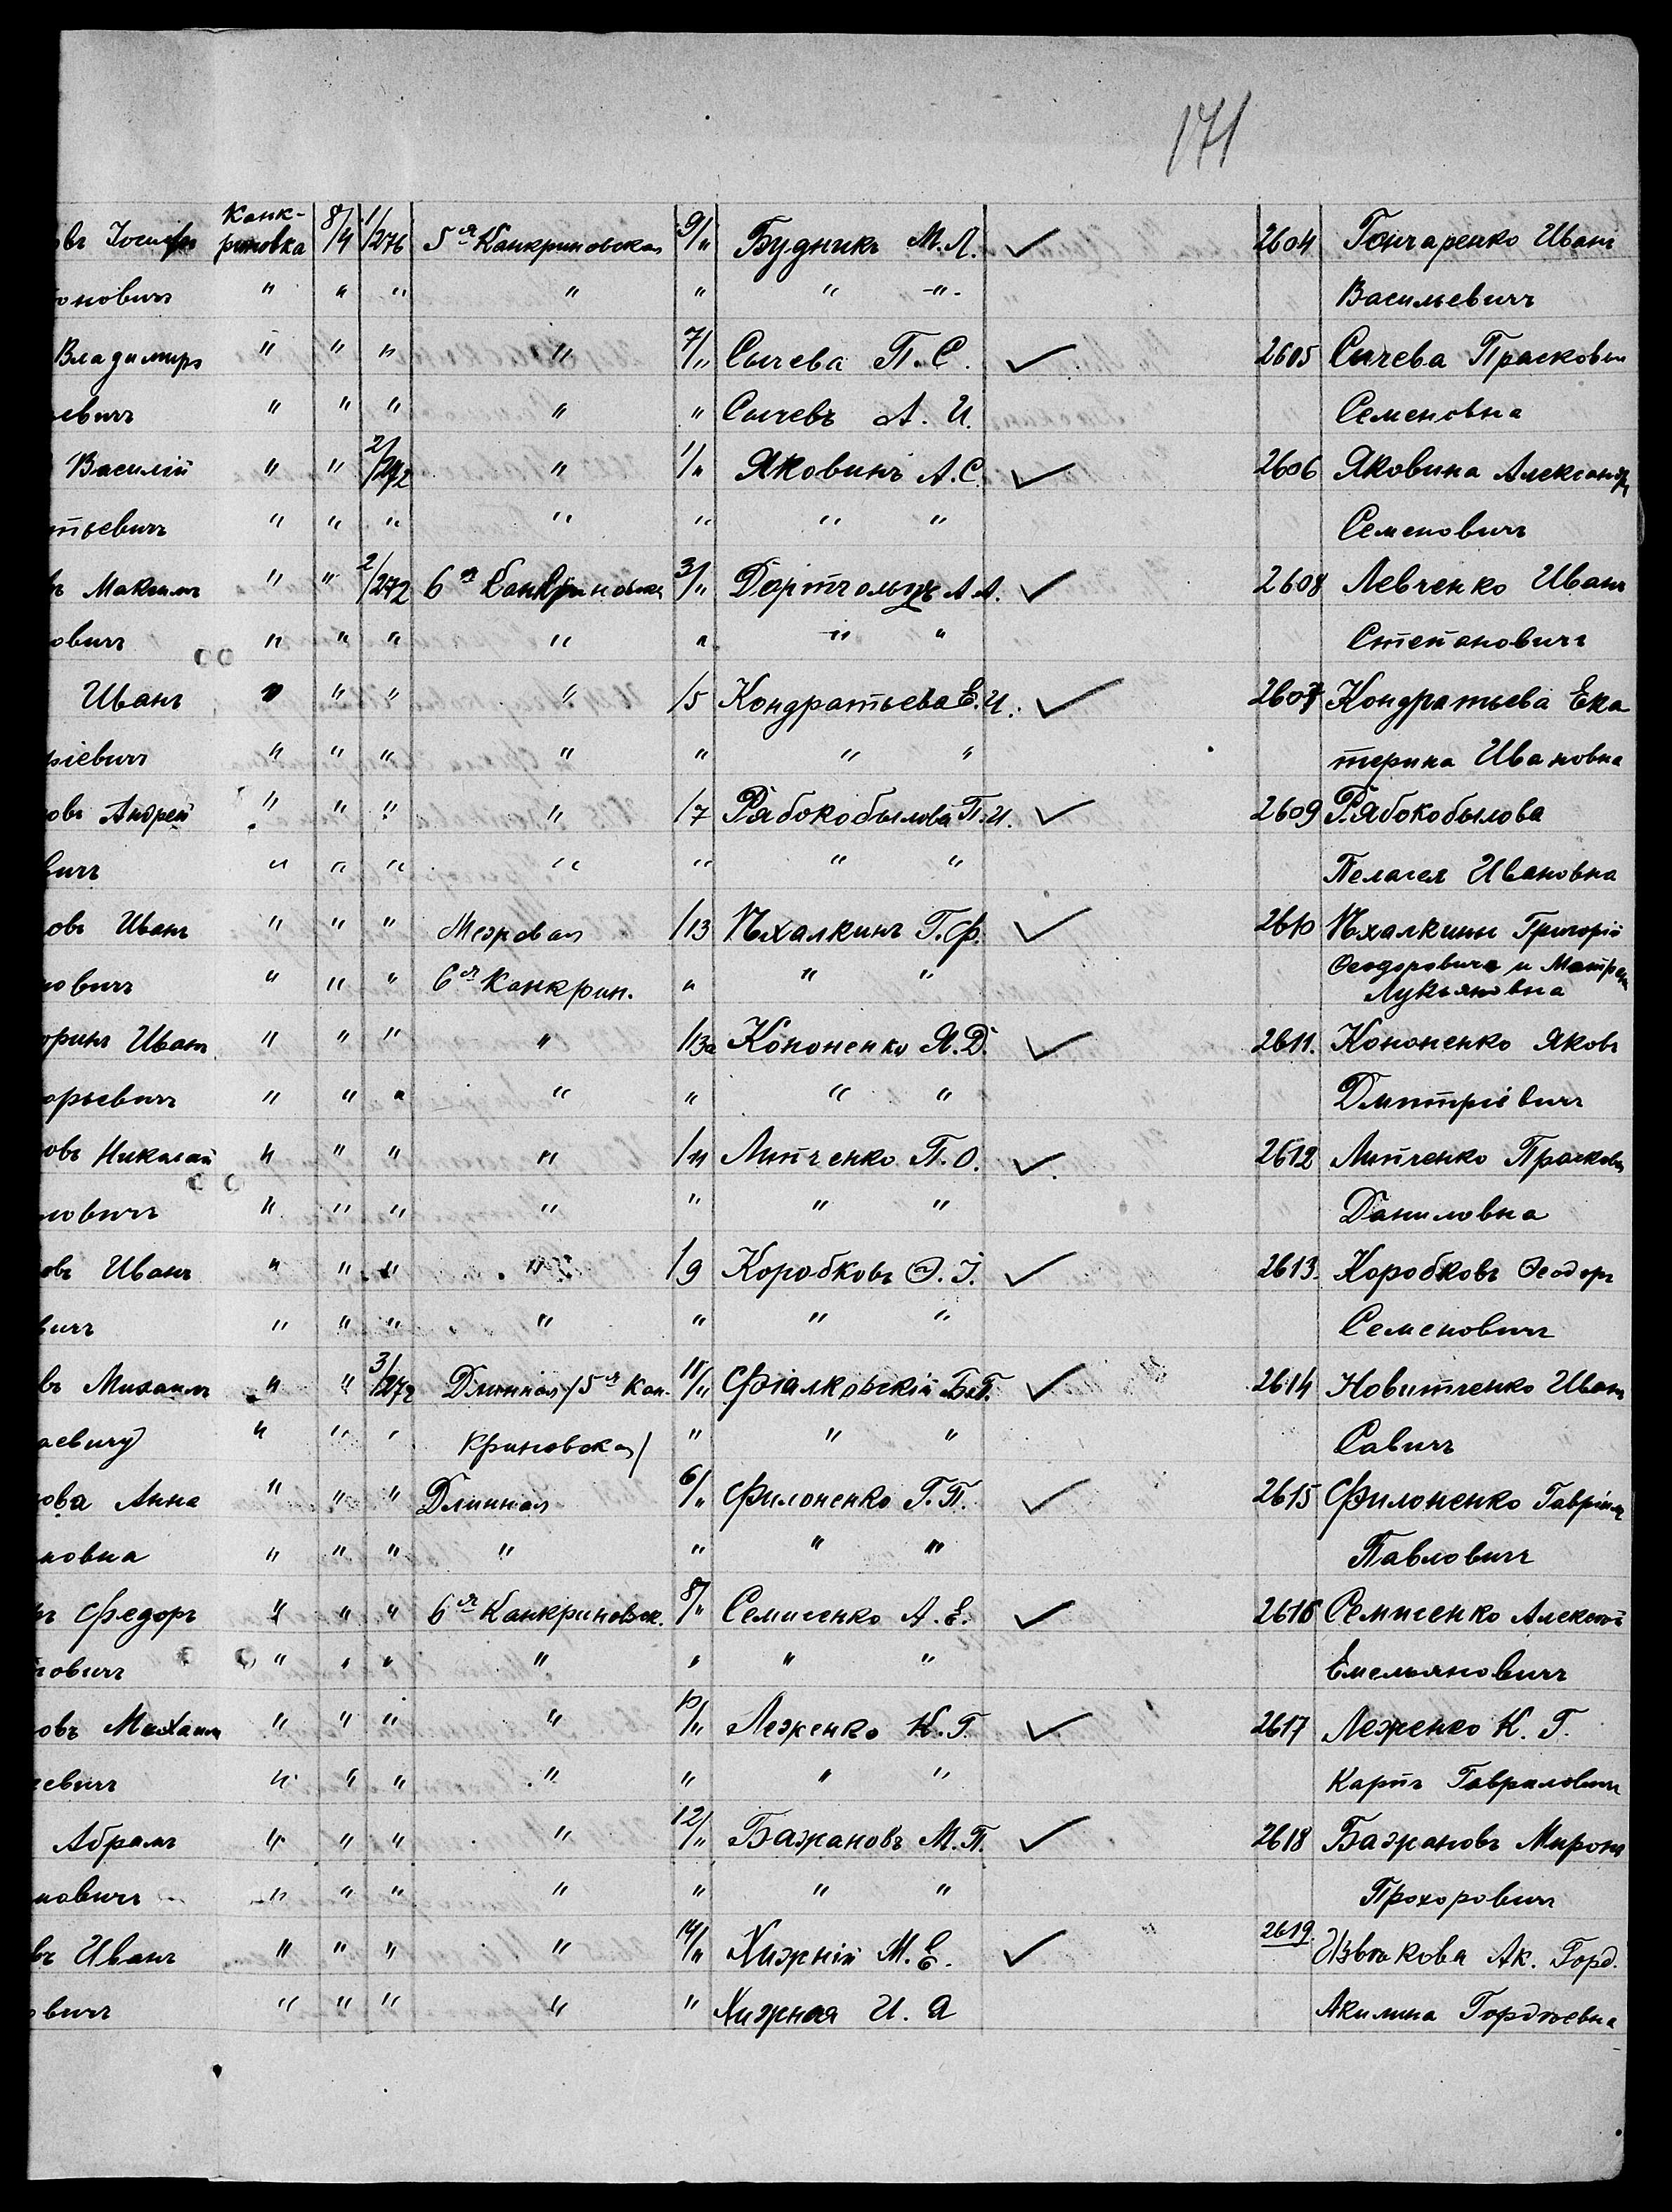 171
въ Іосифъ Канк-риновка 8/4 1/276 5я Канкриновская 9/" Будникъ М. Л. ✓ 2604 Гончаренко Иванъ
оновичъ " " " " " " -"- Васильевичъ
Владимиръ " " " " 7/" Сычева П. С. ✓ 2605 Сычева Прасковья
евичъ " " " " " Сычевъ А. И. Семеновна
Василій " " 2/272 " 1/" Яковинъ А. С. ✓ 2606 Яковина Александръ
тьевичъ " " " " " " " Семеновичъ
въ Максимъ " " 2/272 6я 3/" А. А. ✓ 2608 Левченко Иванъ
овичъ " " " " " " " Степановичъ
Иванъ " " " " /5 Кондратьева Е. И. ✓ 2607 Кондратьева Ека
ріевичъ " " " " " " " терина Ивановна
овъ Андрей " " " " /7 Рябокобылова П. И. ✓ 2609 Рябокобылова
вичъ " " " " " " " Пелагея Ивановна
овъ Иванъ " " " Межевая /13 Пхалкинъ Г. Ф. ✓ 2610 Пхалкины Григорій
новичъ " " " 6я Канкрин. " " " Ѳеодоровичъ и Матрена
Лукьяновна
оринъ Иванъ " " " " /13а Кононенко Я. Д. ✓ 2611. Кононенко Яковъ
орьевичъ " " " " " " " Дмитріевичъ
овъ Николай " " " " /11 Литченко П. О. ✓ 2612 Литченко Прасковья
ловичъ " " " " " " " Даниловна
овъ Иванъ " " " " /9 Коробковъ Ѳ. І. ✓ 2613. Коробковъ Ѳеодоръ
вичъ " " " " " " " Семеновичъ
въ Михаилъ " " 3/272 Длинная /5я Кан- 11/" Фіалковскій Б. Г. ✓ 2614 Новитченко Иванъ
аевичу) " " " криновская/ " " " Савичъ
ова Анна " " " Длинная 6/" Филоненко Г. П. ✓ 2615 Филоненко Гавріилъ
новна " " " " " " " Павловичъ
ъ Федоръ " " " 6я Канкриновск. 8/" Семисенко А. Е. ✓ 2616 Семисенко Алексей
новичъ " " " " " " " Емельяновичъ
овъ Михаилъ " " " " 10/" Леженко К. Г. ✓ 2617 Леженко К. Г.
евичъ " " " " " " " Карпъ Гавриловичъ
Абрамъ " " " " 12/" Бажановъ М. П. ✓ 2618 Бажановъ Миронъ
новичъ " " " " " " " Прохоровичъ
въ Иванъ " " " " 14/" Хижній М. Е. ✓ 2619. Ак. Горд.
овичъ " " " " " Хижная И. Я Акилина Гордѣевна